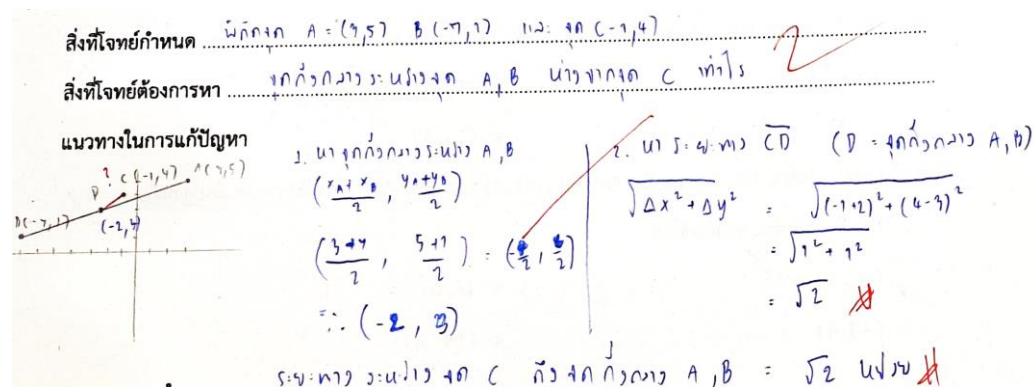 สิ่งที่โจทย์กำหนด พิกัดจุด A = (3,5) B (-7,1) และ จุด C (-1,4)
2
สิ่งที่โจทย์ต้องการหา จุดกึ่งกลางระหว่างจุด A,B ห่างจากจุด C เท่าไร
แนวทางในการแก้ปัญหา
? C (-1,4) A(3,5)
D
B(-7,1)
(-2,3)
1. หาจุดกึ่งกลางระหว่าง A,B
(xA + xB / 2 , yA + yB / 2)
(3+-7 / 2 , 5+1 / 2) = (-4/2 , 6/2)
∴ (-2 , 3)
2. หาระยะทาง CD (D = จุดกึ่งกลาง A,B)
√Δx² + Δy² = √(-1+2)² + (4-3)²
= √1² + 1²
= √2 #
ระยะทางระหว่างจุด C ถึงจุดกึ่งกลาง A,B = √2 หน่วย #